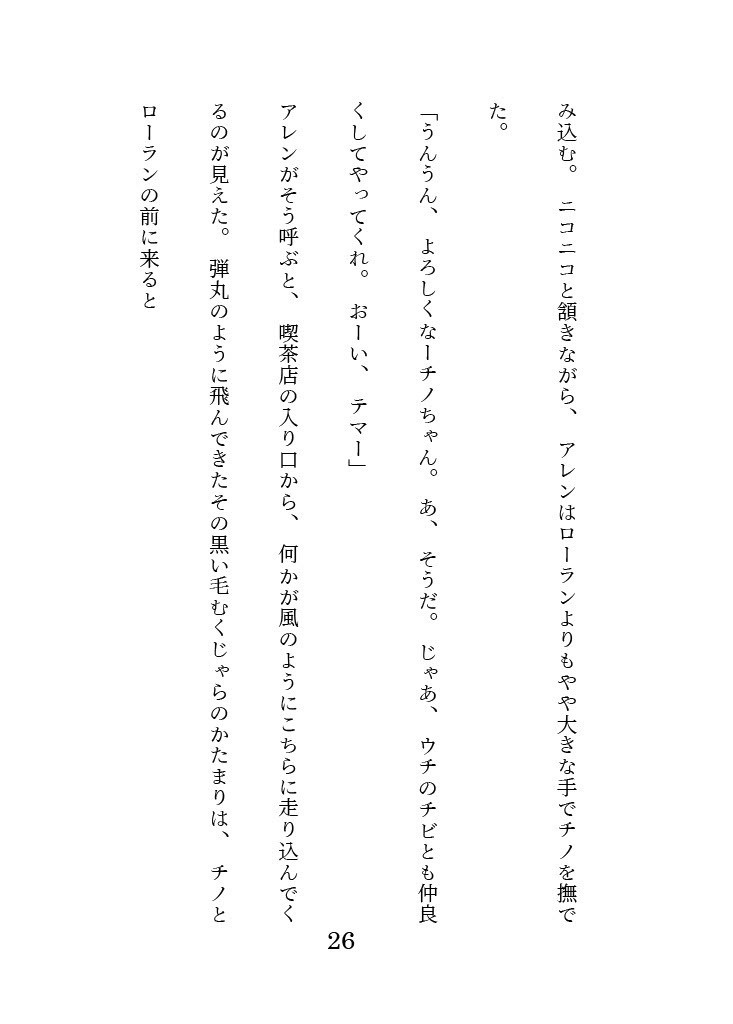 み込む。ニコニコと頷きながら、アレンはローランよりもやや大きな手でチノを撫で
た。
「うんうん、よろしくなーチノちゃん。あ、そうだ。じゃあ、ウチのチビとも仲良
くしてやってくれ。おーい、テマー」
アレンがそう呼ぶと、喫茶店の入り口から、何かが風のようにこちらに走り込んでく
るのが見えた。弾丸のように飛んできたその黒い毛むくじゃらのかたまりは、チノと
ローランの前に来ると
26